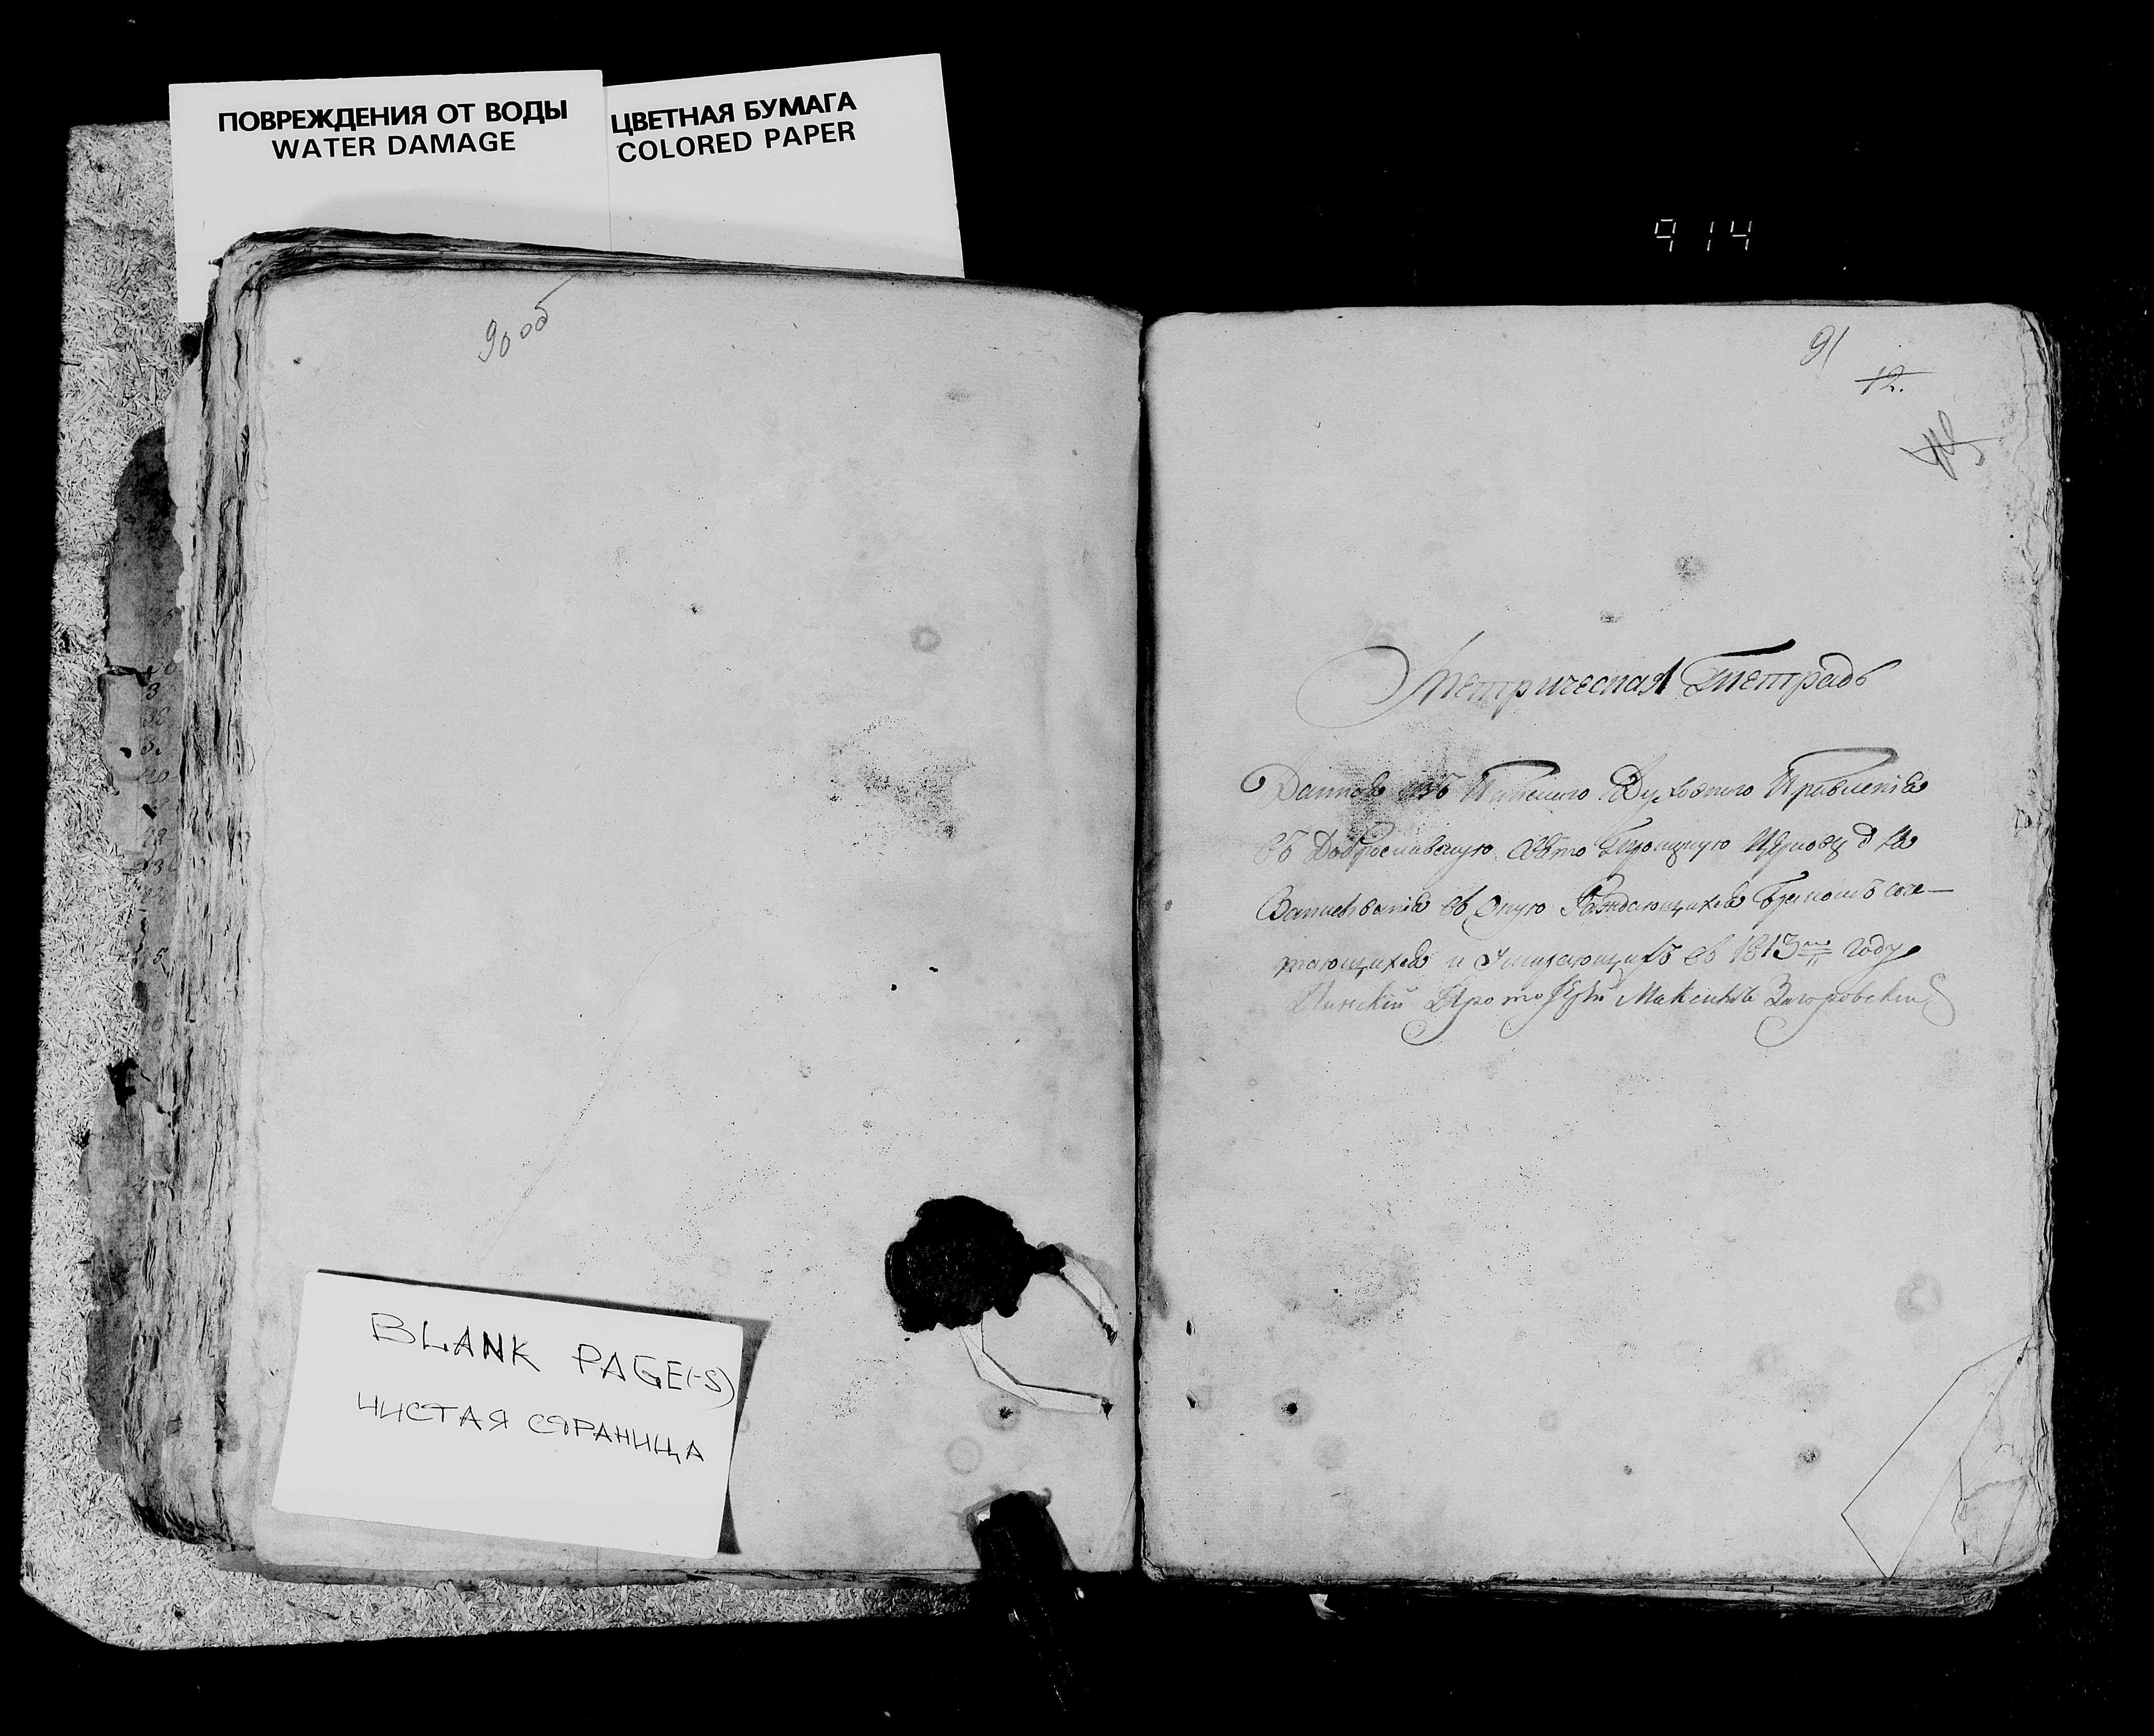 ПОВРЕЖДЕНИЯ ОТ ВОДЫ
WATER DAMAGE
ЦВЕТНАЯ БУМАГА
COLORED PAPER
914
90 об
91
12.
Метрическая тетрадь
Данная изъ Пинскаго Духовнаго Правленія
въ Доброславскую Свято Троицкую Церковь для
Записыванія въ Оную Раждающихся Бракомъ соче-
тающихся и Умирающихъ въ 1813 году
Пинскій Протоіерей Максимъ Загоровскій
BLANK PAGE(-S)
ЧИСТАЯ СТРАНИЦА